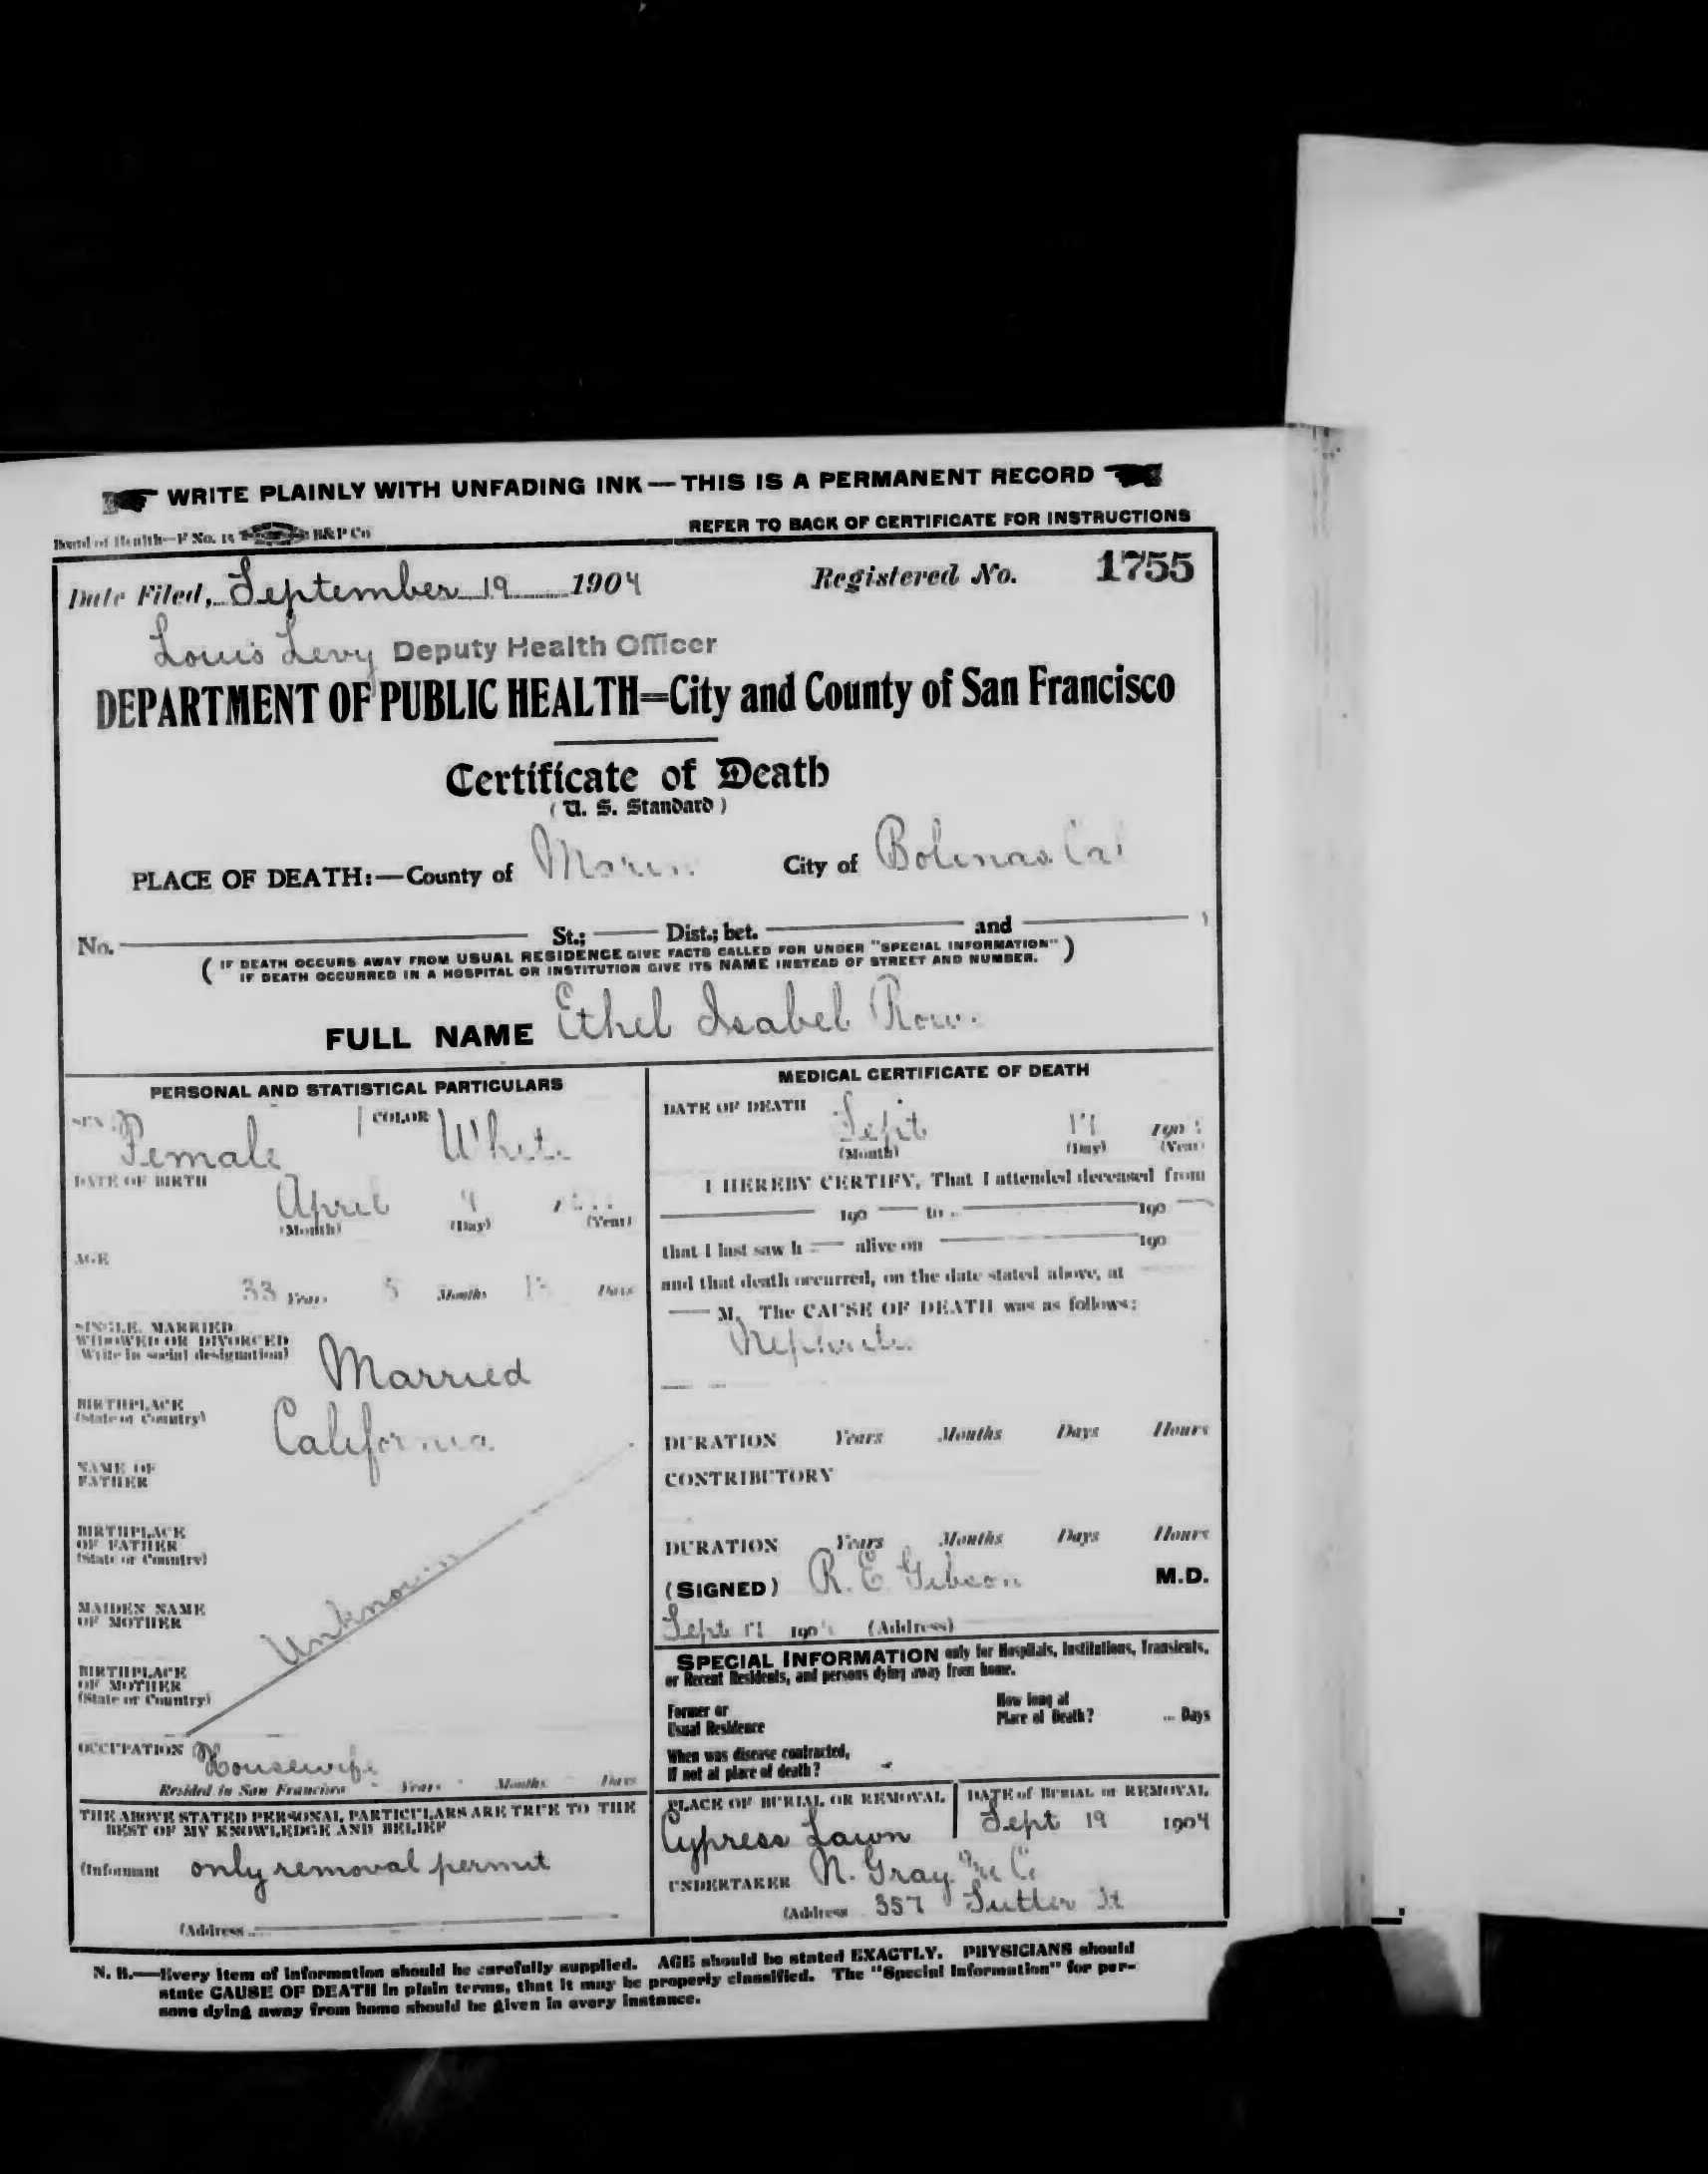 WRITE PLAINLY WITH UNFADING INK — THIS IS A PERMANENT RECORD
Board of Health—F No. 15 B&P Co REFER TO BACK OF CERTIFICATE FOR INSTRUCTIONS
Date Filed, September 19 1904 Registered No. 1755
Louis Levy Deputy Health Officer
DEPARTMENT OF PUBLIC HEALTH=City and County of San Francisco
Certificate of Death
(U. S. Standard)
PLACE OF DEATH:—County of Marin City of Bolinas Cal
No. St.; Dist.; bet. and
( IF DEATH OCCURS AWAY FROM USUAL RESIDENCE GIVE FACTS CALLED FOR UNDER "SPECIAL INFORMATION" )
IF DEATH OCCURRED IN A HOSPITAL OR INSTITUTION GIVE ITS NAME INSTEAD OF STREET AND NUMBER.
FULL NAME Ethel Isabel Row.
PERSONAL AND STATISTICAL PARTICULARS
SEX Female COLOR White
DATE OF BIRTH
April
(Month) (Day) (Year)
AGE
33 Years 5 Months Days
SINGLE, MARRIED
WIDOWED OR DIVORCED
(Write in social designation)
Married
BIRTHPLACE
(State or Country)
California
NAME OF
FATHER
BIRTHPLACE
OF FATHER
(State or Country)
MAIDEN NAME
OF MOTHER
Unknown
BIRTHPLACE
OF MOTHER
(State or Country)
OCCUPATION Housewife
Resided in San Francisco Years Months Days
THE ABOVE STATED PERSONAL PARTICULARS ARE TRUE TO THE
BEST OF MY KNOWLEDGE AND BELIEF
(Informant only removal permit
(Address
MEDICAL CERTIFICATE OF DEATH
DATE OF DEATH
Sept 17 190
(Month) (Day) (Year)
I HEREBY CERTIFY, That I attended deceased from
190 to 190
that I last saw h alive on 190
and that death occurred, on the date stated above, at
M. The CAUSE OF DEATH was as follows:
Nephritis
DURATION Years Months Days Hours
CONTRIBUTORY
DURATION Years Months Days Hours
(SIGNED) R. E. Gibson M.D.
Sept 17 190 (Address)
SPECIAL INFORMATION only for Hospitals, Institutions, Transients,
or Recent Residents, and persons dying away from home.
Former or
Usual Residence
How long at
Place of Death? ... Days
When was disease contracted,
If not at place of death?
PLACE OF BURIAL OR REMOVAL
Cypress Lawn
DATE of BURIAL or REMOVAL
Sept 19 1904
UNDERTAKER N. Gray & Co
(Address 357 Sutter St
N. B.—Every item of information should be carefully supplied. AGE should be stated EXACTLY. PHYSICIANS should
state CAUSE OF DEATH in plain terms, that it may be properly classified. The "Special Information" for per-
sons dying away from home should be given in every instance.